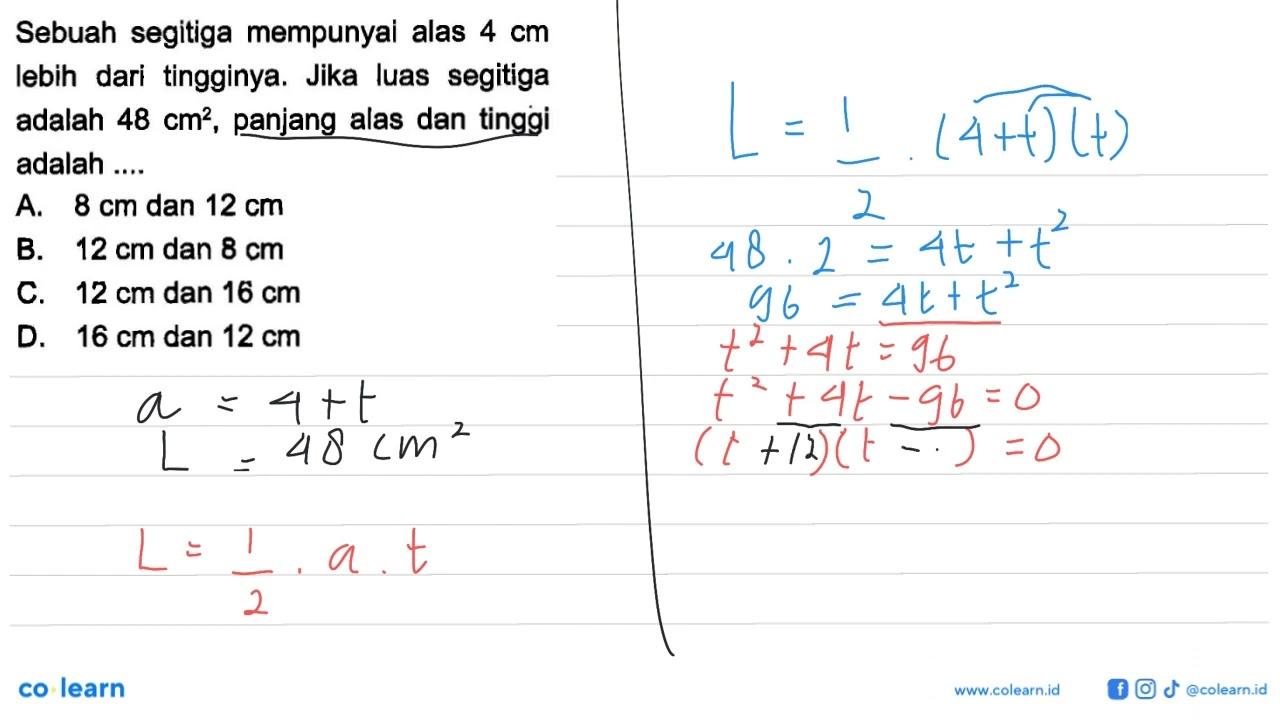 Sebuah segitiga mempunyai alas 4 cm
lebih dari tingginya. Jika luas segitiga
adalah 48 cm², panjang alas dan tinggi
adalah ....
A. 8 cm dan 12 cm
B. 12 cm dan 8 cm
C. 12 cm dan 16 cm
D. 16 cm dan 12 cm
a = 4+t
L = 48 cm²
L = 1/2 . a . t
L = 1/2 . (4+t)(t)
48 . 2 = 4t + t²
96 = 4t + t²
t² + 4t = 96
t² + 4t - 96 = 0
(t + 12)(t - .) = 0
co learn
www.colearn.id
@colearn.id